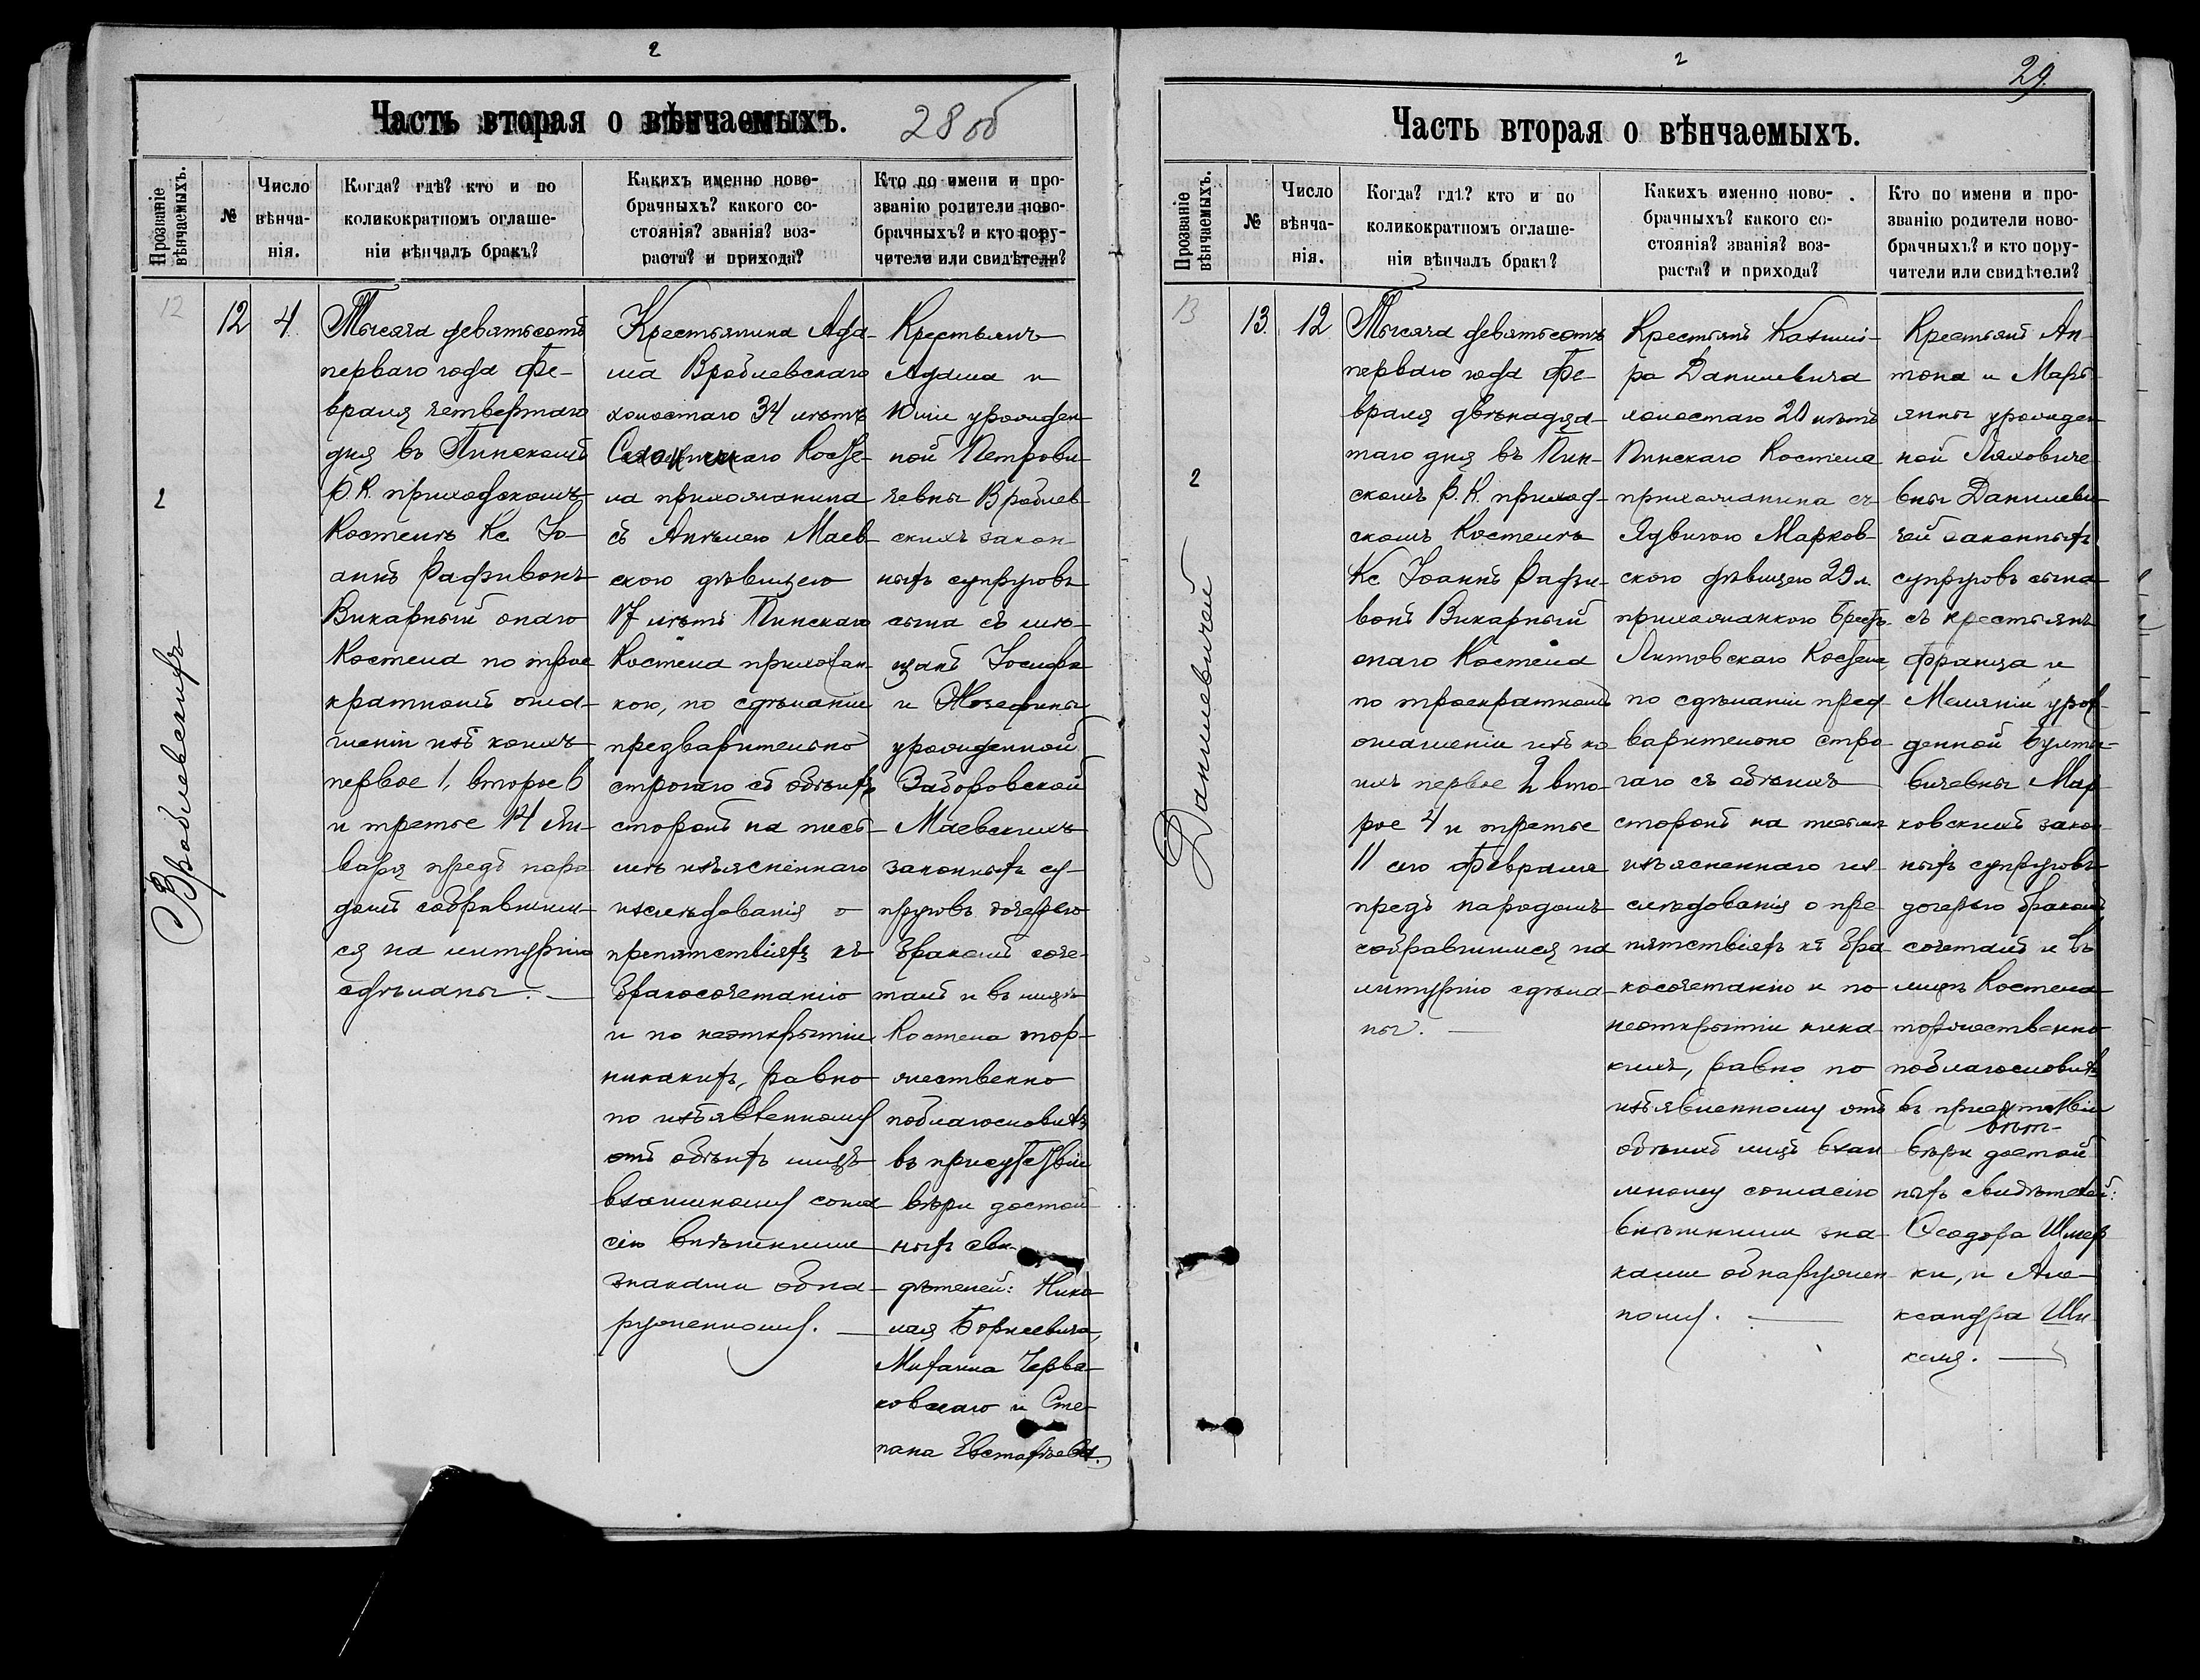 2
Часть вторая о вѣнчаемыхъ.
28 об
Прозваніе
вѣнчаемыхъ.
№
Число
вѣнча-
нія.
Когда? гдѣ? кто и по
коликократномъ оглаше-
ніи вѣнчалъ бракъ?
Какихъ именно ново-
брачныхъ? какого со-
стоянія? званія? воз-
раста? и прихода?
Кто по имени и про-
званію родители ново-
брачныхъ? и кто пору-
чители или свидѣтели?
12
2
Вроблевскихъ
12
4
Тысяча девятьсотъ
перваго года Фе-
враля четвертаго
дня въ Пинскомъ
Р.К. приходскомъ
Костелѣ Кс. Іо-
аннъ Рафивонъ
Викарный онаго
Костела по трое
кратномъ огла-
шеніи изъ коихъ
первое 1, второе 6
и третье 14 Ян-
варя предъ наро
домъ собравшим-
ся на литургію
сдѣланы. —
Крестьянина Ада-
ма Вроблевскаго
холостаго 34 лѣтъ
Косте-
ла прихожанина
съ Анѣлею Маев-
скою дѣвицею
17 лѣтъ Пинскаго
Костела прихожан-
кою, по сдѣланіи
предварительно
строгаго съ обѣихъ
сторонъ на пись-
мѣ изъясненнаго
изслѣдованія о
препятствіяхъ къ
бракосочетанію
и по неоткрытіи
никакихъ, равно
по изъявленному
отъ обѣихъ лицъ
взаимному согла-
сію внѣшними
знаками обна-
руженному. —
Крестьянъ
Адама и
Юліи урожден
ной Петрови
чевны Вроблев
скихъ закон
ныхъ супруговъ
сына съ мѣ-
щанъ Іосифа
и Жозефины
урожденной
Заборовской
Маевскихъ
законныхъ су-
пруговъ дочерью
бракомъ соче-
талъ и въ лицѣ
Костела тор-
жественно
поблагословилъ
въ присутствіи
вѣры достой
ныхъ сви-
дѣтелей: Нико
лая Борисевича,
Михаила Черва-
ковскаго и Сте-
пана Евстафьева.
2
29.
Часть вторая о вѣнчаемыхъ.
Прозваніе
вѣнчаемыхъ.
№
Число
вѣнча-
нія.
Когда? гдѣ? кто и по
коликократномъ оглаше-
ніи вѣнчалъ бракъ?
Какихъ именно ново-
брачныхъ? какого со-
стоянія? званія? воз-
раста? и прихода?
Кто по имени и про-
званію родители ново-
брачныхъ? и кто пору-
чители или свидѣтели?
13
2
Данилевичей
13
12
Тысяча девятьсотъ
перваго года Фе-
враля двѣнадца-
таго дня въ Пин-
скомъ Р.К. приход-
скомъ Костелѣ
Кс Іоаннъ Рафи-
вонъ Викарный
онаго Костела
по троекратномъ
оглашеніи изъ ко
ихъ первое 2 вто-
рое 4 и третье
11 сего Февраля
предъ народомъ
собравшимся на
литургію сдѣла-
ны. —
Крестьянъ Казимі-
ра Данилевича
холостаго 20 лѣтъ
Пинскаго Костела
прихожанина съ
Ядвигою Марков-
скою дѣвицею 29 л.
прихожанкою Брестъ-
Литовскаго Костела,
по сдѣланіи пред-
варительно стро-
гаго съ обѣихъ
сторонъ на письмѣ
изъясненнаго из-
слѣдованія о пре
пятствіяхъ къ бра-
косочетанію и по
неоткрытіи ника-
кихъ, равно по
изъявленному отъ
обѣихъ лицъ взаи
мному согласію
внѣшними зна-
ками обнаружен
ному. —
Крестьянъ Ан-
тона и Марь
янны урожден
ной Ляховиче-
вны Данилеви
чей законныхъ
супруговъ сына
съ крестьянъ
Франца и
Меляніи урож-
денной
Мар-
ковскихъ закон
ныхъ супруговъ
дочерью бракомъ
сочеталъ и въ
лицѣ Костела
торжественно
поблагословилъ
въ присутствіи
вѣры достой
ныхъ свидѣтелей:
Ѳеодора Шмер
ки, и Але-
ксандра Ши
келя. —